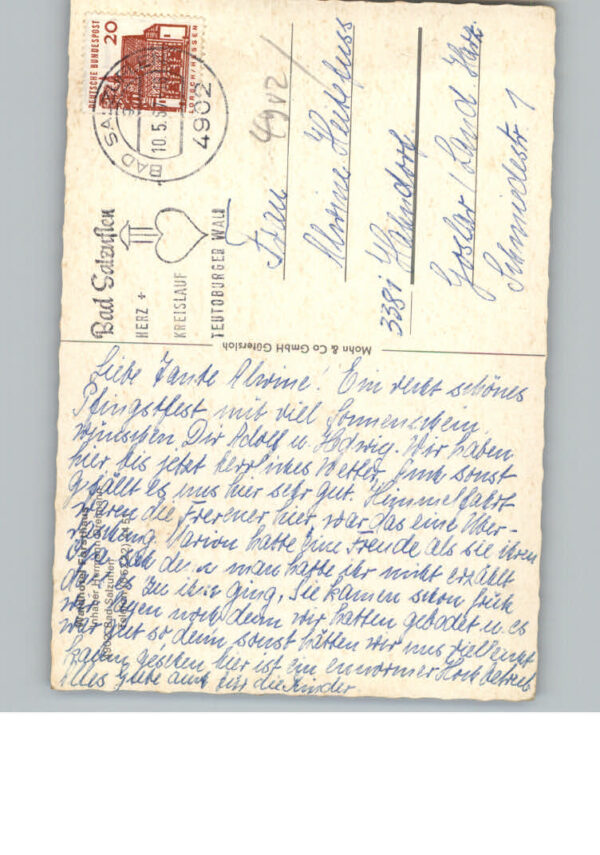 Liebe Tante Alwine! Ein recht schönes
Pfingstfest mit viel Sonnenschein
wünschen Dir Adolf u. Hedwig. Wir haben
hier bis jetzt herrliches Wetter, auch sonst
gefällt es uns hier sehr gut. Himmelfahrt
waren die Frerener hier, war das eine Über-
raschung. Marion hatte eine Freude als sie ihren
Opa sah denn man hatte ihr nicht erzählt
das es zu ihm ging. Sie kamen schon früh
wir noch denn wir hatten gebadet u. es
war gut so denn sonst hätten wir uns vielleicht
kaum gesehen hier ist ein ennormer Hochbetrieb
Alles Gute auch für die Kinder
Inhaber Hermann
4902 Bad Salzuflen
Mohn & Co GmbH Gütersloh
DEUTSCHE BUNDESPOST
20
LORSCH/HESSEN
BAD SALZUFLEN
10.5.
4902
Bad Salzuflen
HERZ +
KREISLAUF
TEUTOBURGER WALD
4902
Frau
Alwine
3381 Hahndorf
Goslar / Land Harz
Schmiedestr 1